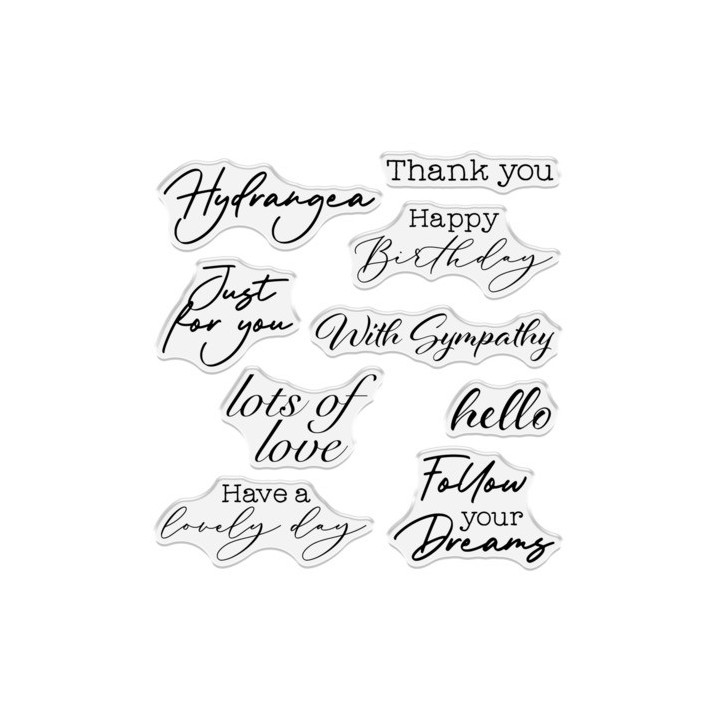 Hydrangea
Thank you
Happy
Birthday
Just
for you
With Sympathy
lots of
love
hello
Have a
lovely day
Follow
your
Dreams